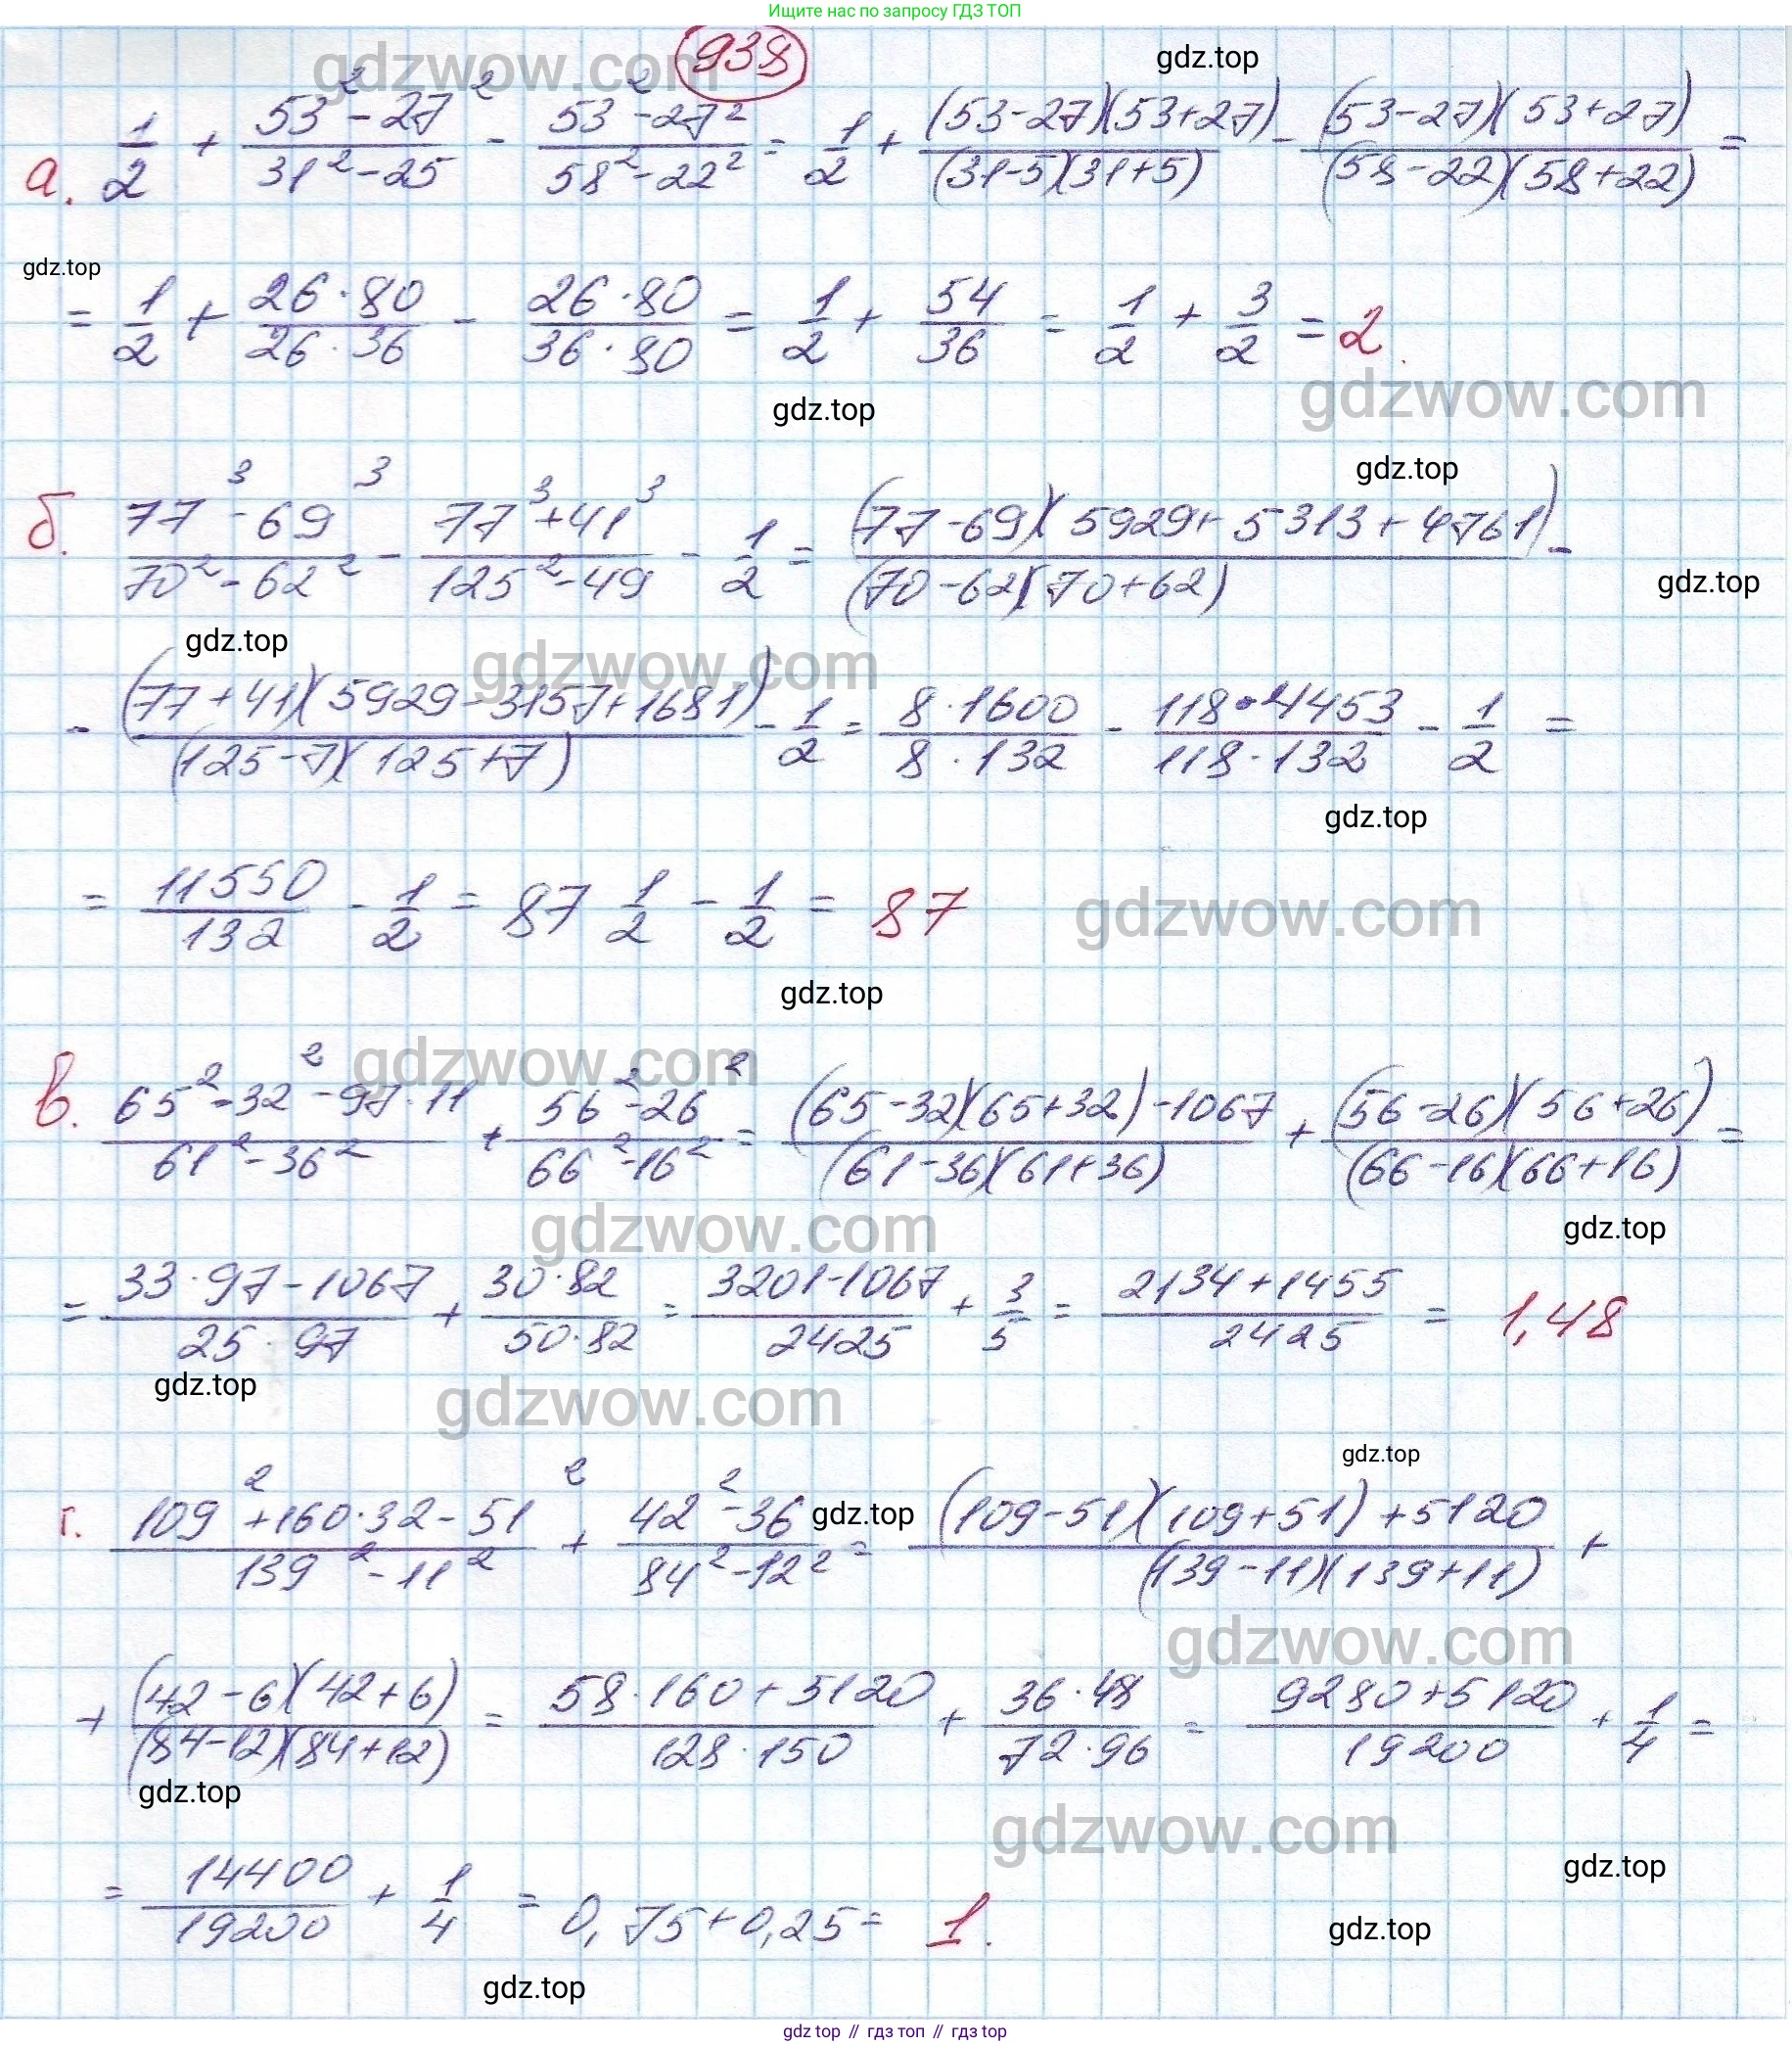 Ищите нас по запросу ГДЗ ТОП
938
gdzwow.com
gdz.top
а. 1/2 + (53² - 27²)/(31² - 25) - (53² - 27²)/(58² - 22²) = 1/2 + ((53-27)(53+27))/((31-5)(31+5)) - ((53-27)(53+27))/((58-22)(58+22)) =
gdz.top
= 1/2 + (26·80)/(26·36) - (26·80)/(36·80) = 1/2 + 54/36 = 1/2 + 3/2 = 2.
gdzwow.com
gdz.top
gdz.top
б. (77³ - 69³)/(70² - 62²) - (77³ + 41³)/(125² - 49) - 1/2 = ((77-69)(5929+5313+4761))/((70-62)(70+62)) -
gdz.top
gdz.top
gdzwow.com
- ((77+41)(5929-3157+1681))/((125-7)(125+7)) - 1/2 = (8·1600)/(8·132) - (118·4453)/(118·132) - 1/2 =
gdz.top
= 11550/132 - 1/2 = 87 1/2 - 1/2 = 87
gdzwow.com
gdz.top
gdzwow.com
в. (65² - 32² - 97·11)/(61² - 36²) + (56² - 26²)/(66² - 16²) = ((65-32)(65+32) - 1067)/((61-36)(61+36)) + ((56-26)(56+26))/((66-16)(66+16)) =
gdzwow.com
gdz.top
= (33·97 - 1067)/(25·97) + (30·82)/(50·82) = (3201-1067)/2425 + 3/5 = (2134+1455)/2425 = 1,48
gdz.top
gdzwow.com
gdz.top
г. (109² + 160·32 - 51²)/(139² - 11²) + (42² - 36)/(84² - 12²) = ((109-51)(109+51) + 5120)/((139-11)(139+11)) +
gdz.top
gdzwow.com
+ ((42-6)(42+6))/((84-12)(84+12)) = (58·160 + 5120)/(128·150) + (36·48)/(72·96) = (9280+5120)/19200 + 1/4 =
gdz.top
gdzwow.com
gdz.top
= 14400/19200 + 1/4 = 0,75+0,25= 1.
gdz.top
gdz.top
gdz top // гдз топ // гдз top